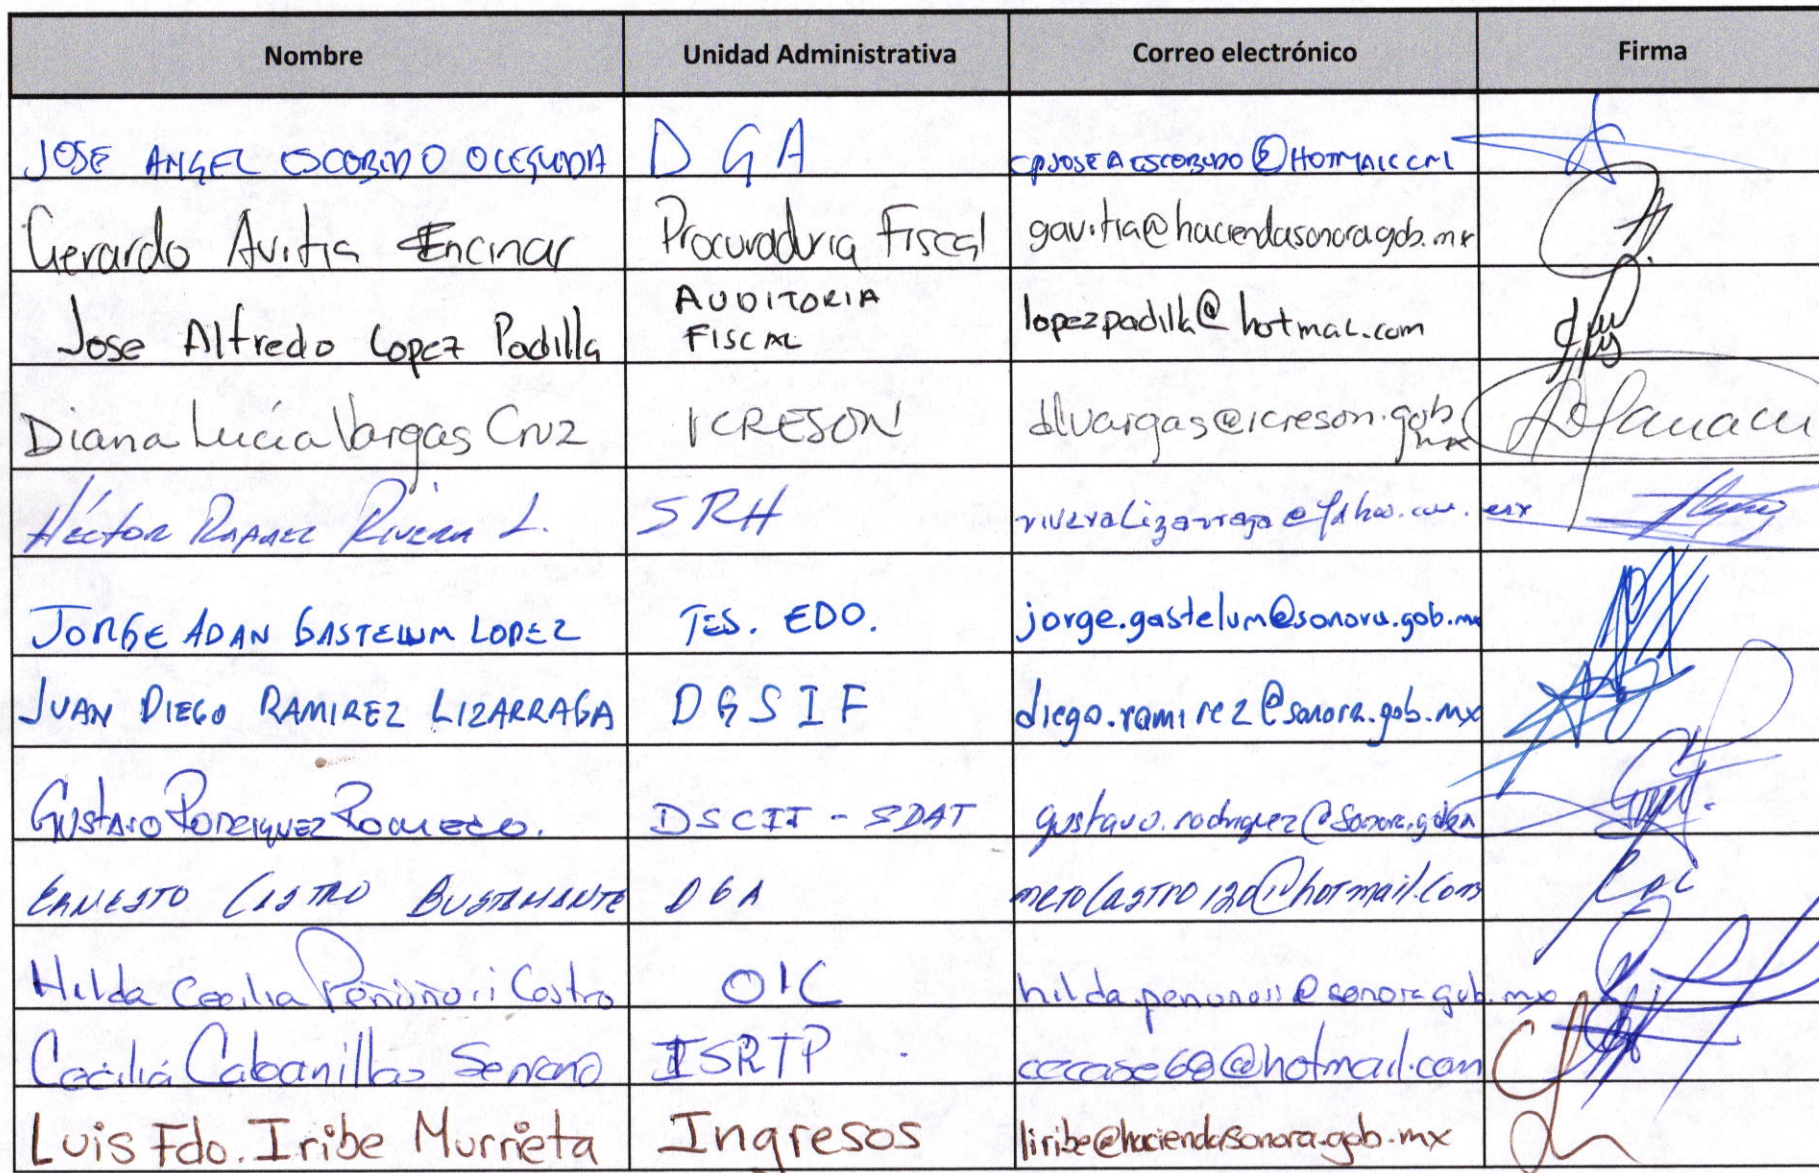 Nombre Unidad Administrativa Correo electrónico Firma
JOSE ANGEL ESCOBEDO OCEGUEDA DGA CPJOSEAESCOBEDO@HOTMAIL.COM
Gerardo Avitia Encinas Procuraduria Fiscal gavitia@haciendasonora.gob.mx
Jose Alfredo Lopez Padilla AUDITORIA
FISCAL lopezpadilla@hotmail.com
Diana Lucía Vargas Cruz ICRESON dlvargas@icreson.gob.mx
Héctor RAFAEL RIVERA L. SRH riveralizarraga@yahoo.com.mx
JORGE ADAN GASTELUM LOPEZ TES. EDO. jorge.gastelum@sonora.gob.mx
JUAN DIEGO RAMIREZ LIZARRAGA DGSIF diego.ramirez@sonora.gob.mx
GUSTAVO RODRIGUEZ DSCII - SDAT gustavo.rodriguez@sonora.gob.mx
ERNESTO CASTRO BUSTAMANTE DGA
Hilda Cecilia Peñúñuri Castro OIC hilda.penunuri@sonora.gob.mx
Cecilia Cabanillas Serrano ISRTP cecase68@hotmail.com
Luis Fdo. Iribe Murrieta Ingresos liribe@haciendasonora.gob.mx